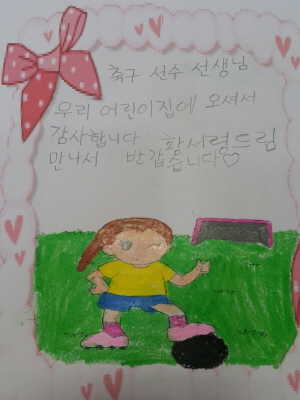 축구 선수 선생님
우리 어린이집에 오셔서
감사합니다 황서령드림
만나서 반갑습니다♡